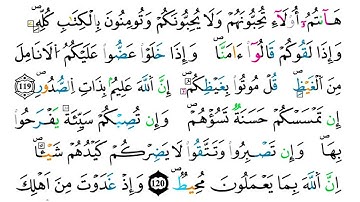 هَٰٓأَنتُمْ أُو۟لَآءِ تُحِبُّونَهُمْ وَلَا يُحِبُّونَكُمْ وَتُؤْمِنُونَ بِٱلْكِتَٰبِ كُلِّهِۦ
وَإِذَا لَقُوكُمْ قَالُوٓا۟ ءَامَنَّا وَإِذَا خَلَوْا۟ عَضُّوا۟ عَلَيْكُمُ ٱلْأَنَامِلَ
مِنَ ٱلْغَيْظِ قُلْ مُوتُوا۟ بِغَيْظِكُمْ إِنَّ ٱللَّهَ عَلِيمٌۢ بِذَاتِ ٱلصُّدُورِ (119)
إِن تَمْسَسْكُمْ حَسَنَةٌ تَسُؤْهُمْ وَإِن تُصِبْكُمْ سَيِّئَةٌ يَفْرَحُوا۟
بِهَا وَإِن تَصْبِرُوا۟ وَتَتَّقُوا۟ لَا يَضِرْكُمْ كَيْدُهُمْ شَيْـًٔا
إِنَّ ٱللَّهَ بِمَا يَعْمَلُونَ مُحِيطٌ (120) وَإِذْ غَدَوْتَ مِنْ أَهْلِكَ